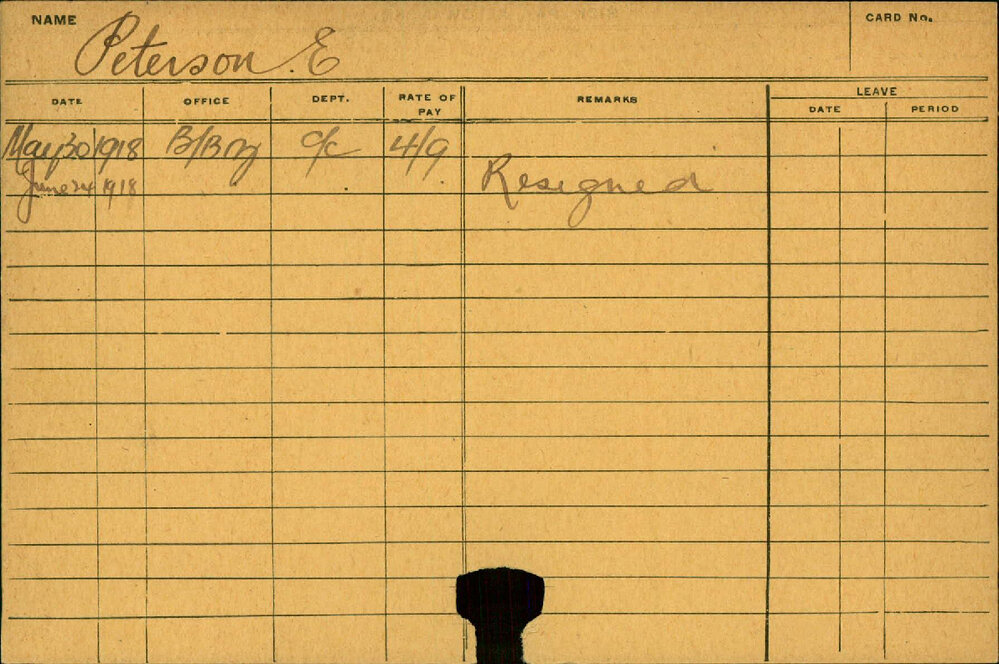 NAME
CARD No.
Peterson. E
DATE OFFICE DEPT. RATE OF PAY REMARKS LEAVE
DATE PERIOD
May 30 1918 B/Bay c/c 4/9
June 24 1918 Resigned